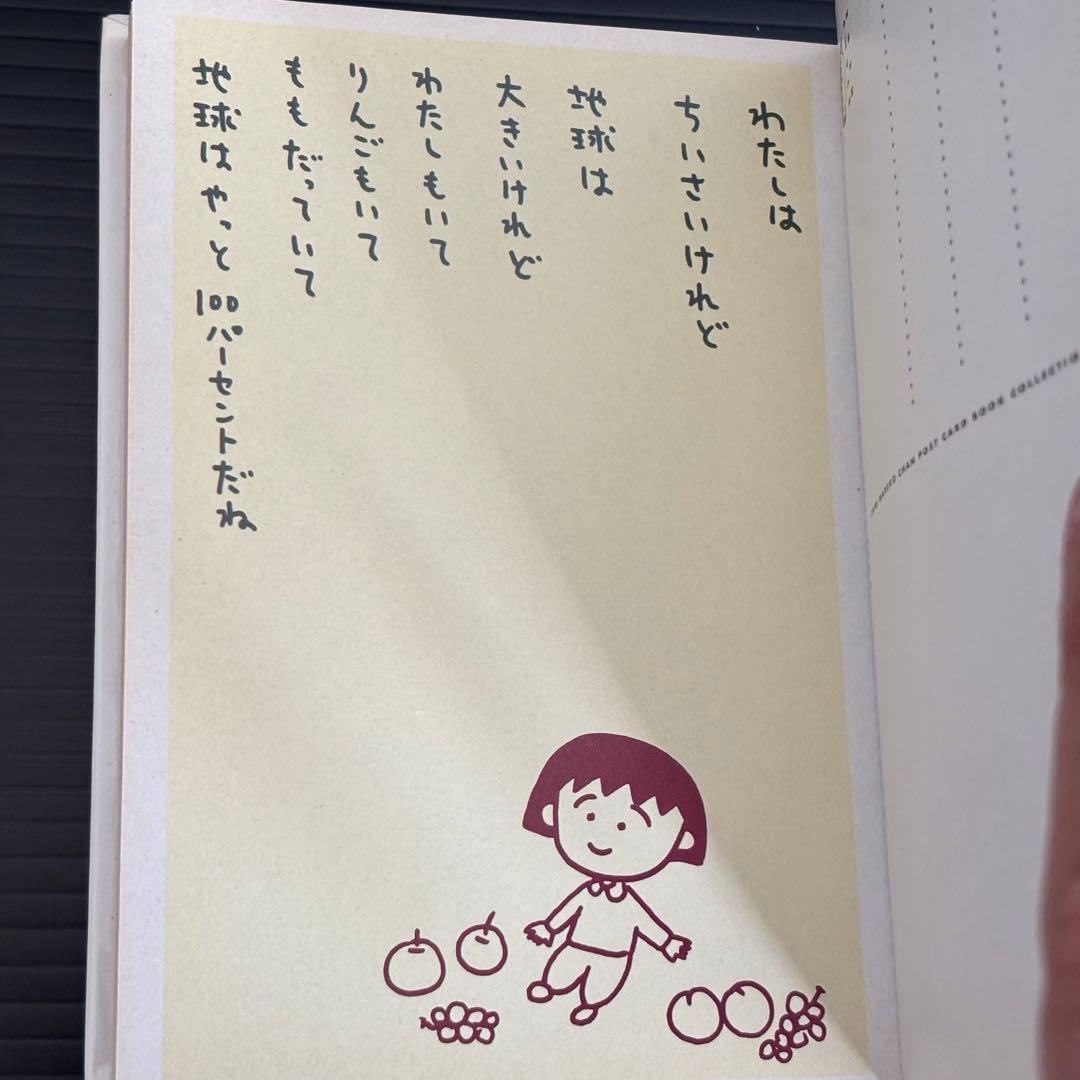 わたしは
ちいさいけれど
地球は
大きいけれど
わたしもいて
りんごもいて
ももだっていて
地球はやっと100パーセントだね
CHAN POST CARD BOOK COLLECTIO